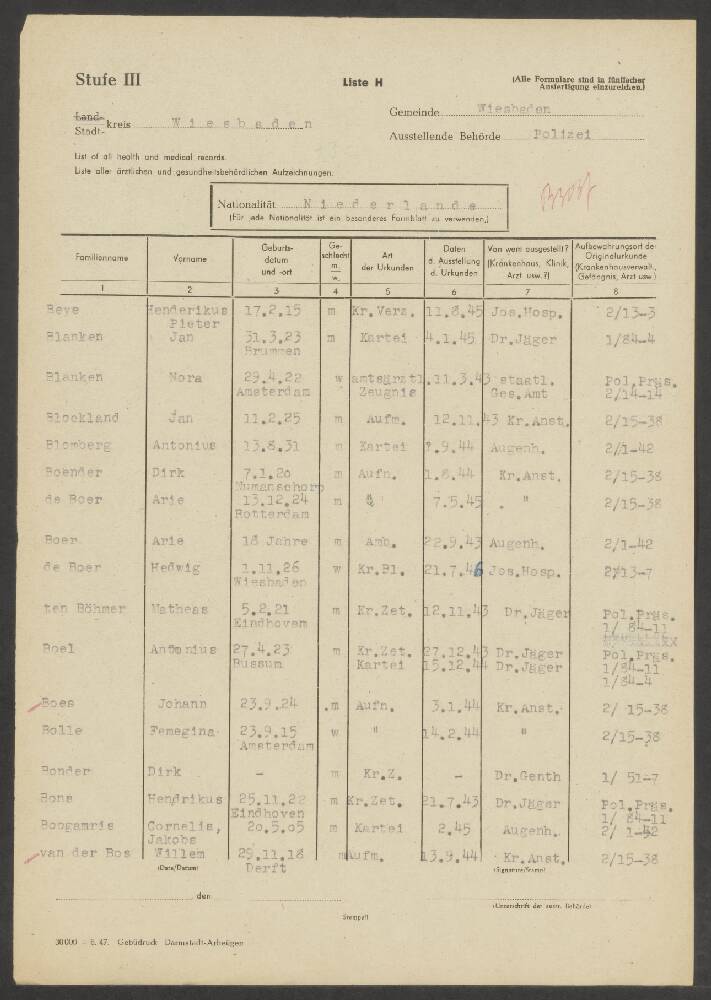 Stufe III
Liste H
(Alle Formulare sind in fünffacher
Ausfertigung einzureichen.)
Land-
Stadt- kreis Wiesbaden
Gemeinde Wiesbaden
Ausstellende Behörde Polizei
List of all health and medical records.
Liste aller ärztlichen und gesundheitsbehördlichen Aufzeichnungen.
Nationalität Niederlande
(Für jede Nationalität ist ein besonderes Formblatt zu verwenden.)
Familienname Vorname Geburts-datum und -ort Ge-schlecht m. w. Art der Urkunden Daten d. Ausstellung d. Urkunden Von wem ausgestellt? (Krankenhaus, Klinik, Arzt usw.?) Aufbewahrungsort der Originalurkunde (Krankenhausverwalt., Gefängnis, Arzt usw.)
1 2 3 4 5 6 7 8
Beye Henderikus 17.2.15 m Kr.Verz. 11.8.45 Jos.Hosp. 2/13-3
Pieter
Blanken Jan 31.3.23 m Kartei 4.1.45 Dr.Jäger 1/84-4
Brummen
Blanken Nora 29.4.22 w amtsärztl. 11.3.43 staatl. Pol.Präs.
Amsterdam Zeugnis Ges.Amt 2/14-14
Blockland Jan 11.2.25 m Aufm. 12.11.43 Kr.Anst. 2/15-38
Blomberg Antonius 13.8.31 m Kartei .9.44 Augenh. 2/1-42
Boender Dirk 7.1.20 m Aufn. 1.8.44 Kr.Anst. 2/15-38
Numanschorp
de Boer Arie 13.12.24 m " 7.5.45 " 2/15-38
Rotterdam
Boer Arie 18 Jahre m Amb. 22.9.43 Augenh. 2/1-42
de Boer Hedwig 1.11.26 w Kr.Bl. 21.7.46 Jos.Hosp. 2/13-7
Wiesbaden
ten Böhmer Matheas 5.2.21 m Kr.Zet. 12.11.43 Dr.Jäger Pol.Präs.
Eindhovem 1/ 84-11
Boel Antonius 27.4.23 m Kr.Zet. 27.12.43 Dr.Jäger Pol.Präs.
Bussum Kartei 15.12.44 Dr.Jäger 1/84-11
1/84-4
Boes Johann 23.9.24 m Aufn. 3.1.44 Kr.Anst. 2/ 15-38
Bolle Femegina 23.9.15 w " 14.2.44 " 2/15-38
Amsterdam
Bonder Dirk - m Kr.Z. - Dr.Genth 1/ 51-7
Bons Hendrikus 25.11.22 m Kr.Zet. 21.7.43 Dr.Jäger Pol.Präs.
Eindhoven 1/ 84-11
Boogamris Cornelis, 20.5.05 m Kartei 2.45 Augenh. 2/ 1-52
Jakobs
van der Bos Willem 29.11.18 m Aufm. 13.9.44 Kr.Anst. 2/15-38
(Date/Datum) Derft (Signature/Name)
den
(Unterschrift der ausst. Behörde)
Stempel!
30000 – 8. 47. Gebüdruck Darmstadt-Arheilgen